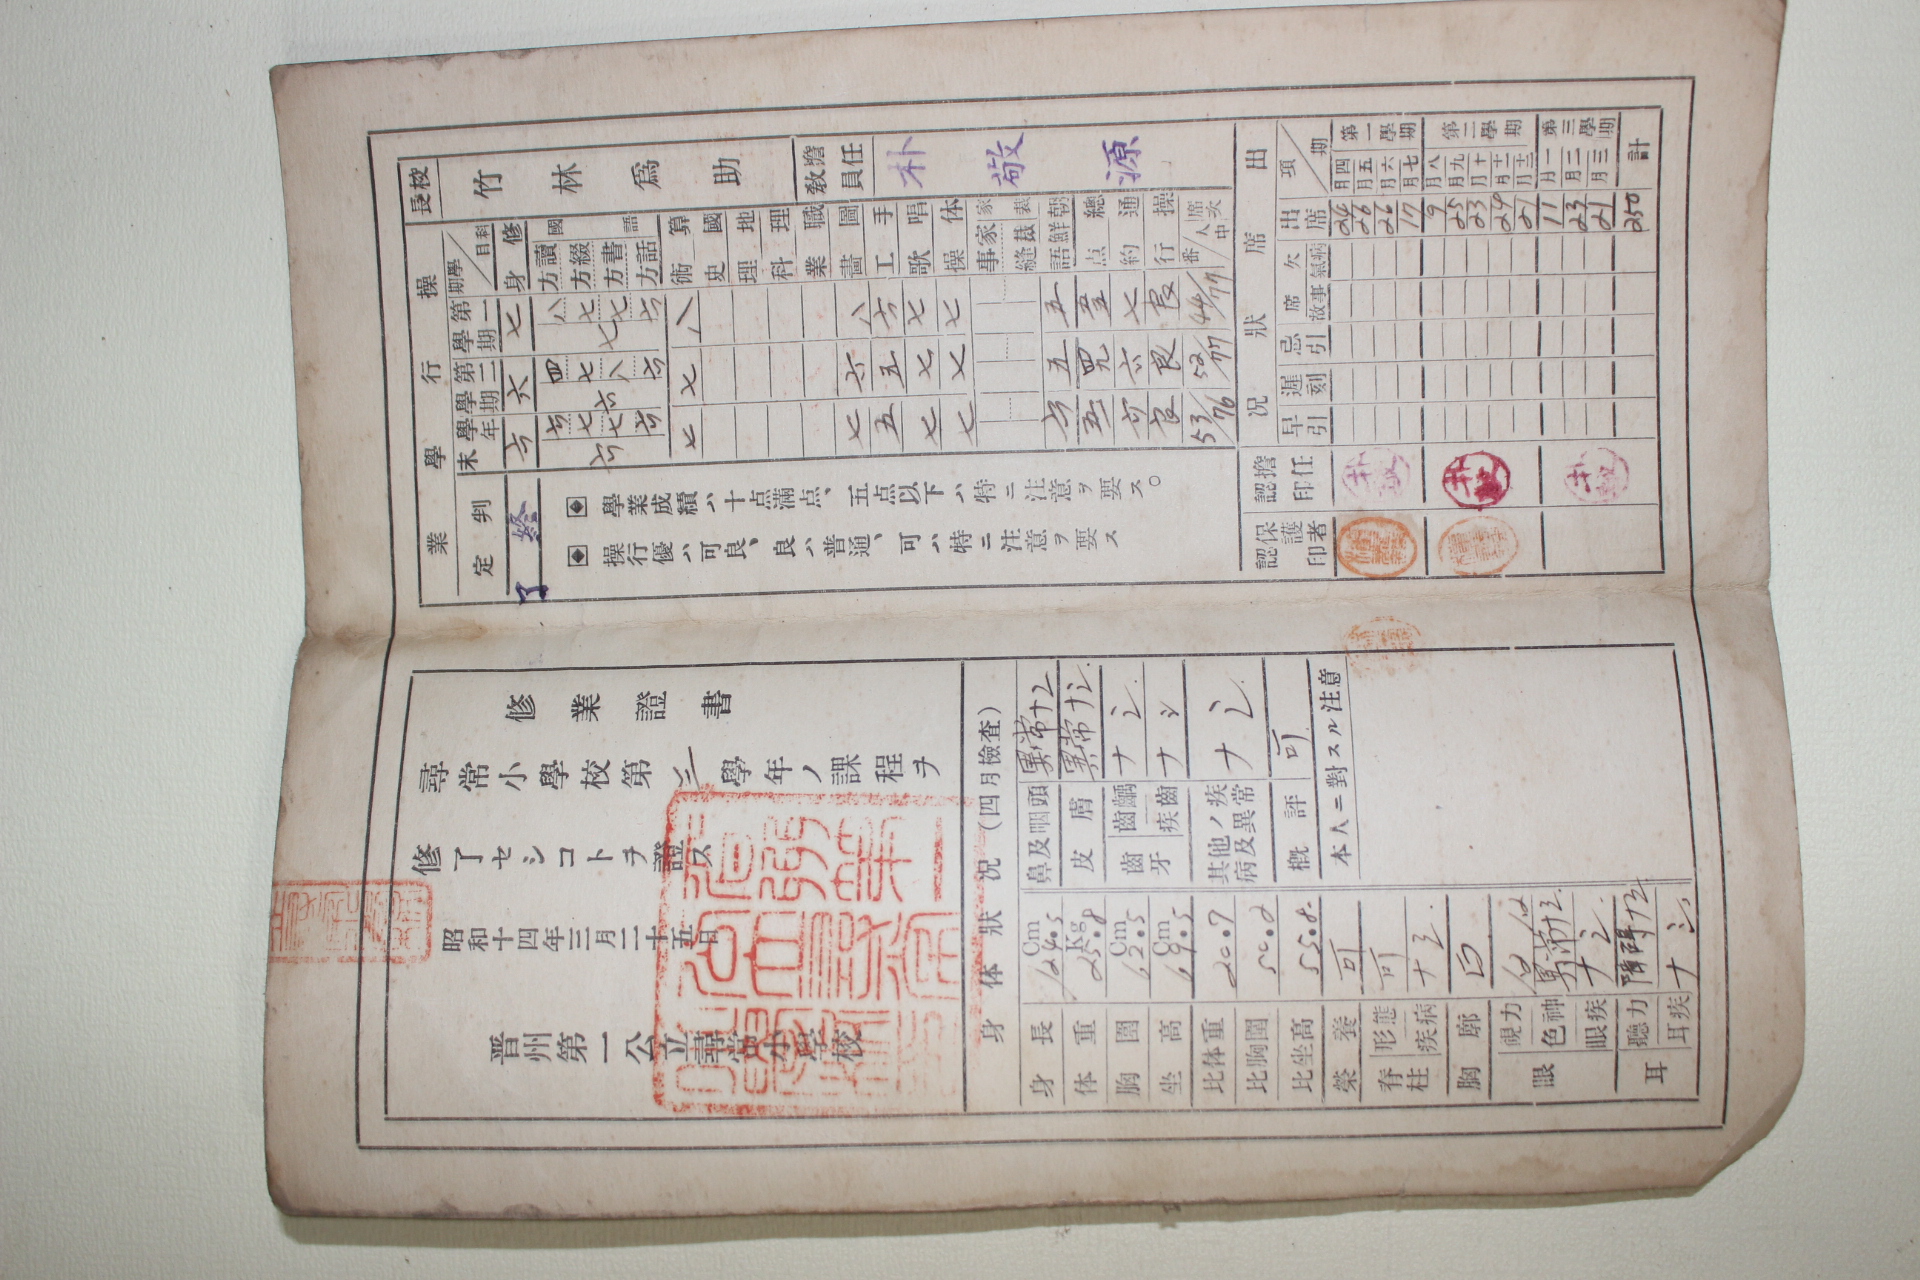 校長 竹林爲助
教員擔任 朴敬源
學業操行
科目 學期 第一學期 第二學期 學年末 判定
修身 七 六 六 終了
國語
讀方 八 四 六
綴方 七 七 七
書方 七 八 七
話方 六 六 六
算術 八 七 七
國史
地理
理科
職業
圖畫 八 六 七
手工 六 五 五
唱歌 七 七 七
体操 七 七 七
家事
裁縫
朝鮮語 五 五 六
總点
通約 七 六 六
操行 良 良 良
席次 番/人中 44/77 52/77 53/76
◆學業成績ハ十点滿点、五点以下ハ特ニ注意ヲ要ス。
◆操行優ハ可良、良ハ普通、可ハ特ニ注意ヲ要ス
出席狀况
項 期 出席 欠席 病氣 事故 忌引 遲刻 早引 擔任認印 保護者認印
第一學期
四月 24
五月 26
六月 26
七月 17
第二學期
八月 9
九月 25
十月 23
十一月 24
十二月 21
第三學期
一月 11
二月 23
三月 21
計 250
修業證書
尋常小學校第三學年ノ課程ヲ
修了セシコトヲ證ス
昭和十四年三月二十五日
晋州第一公立尋常小學校
身体狀况(四月檢査)
身長 124.5 Cm
体重 25.8 Kg
胸圍 62.5 Cm
坐高 69.5 Cm
比体重 20.7
比胸圍 50.2
比坐高 55.8
榮養 可
脊柱 形態 可
疾病 ナシ
胸廓
眼 視力
色神 異常ナシ
眼疾 ナシ
耳 聽力 障碍ナシ
耳疾 ナシ
鼻及咽頭 異常ナシ
皮膚 異常ナシ
齒牙 齲齒 ナシ
齒疾 ナシ
其他ノ疾病及異常 ナシ
槪評 可
本人ニ對スル注意